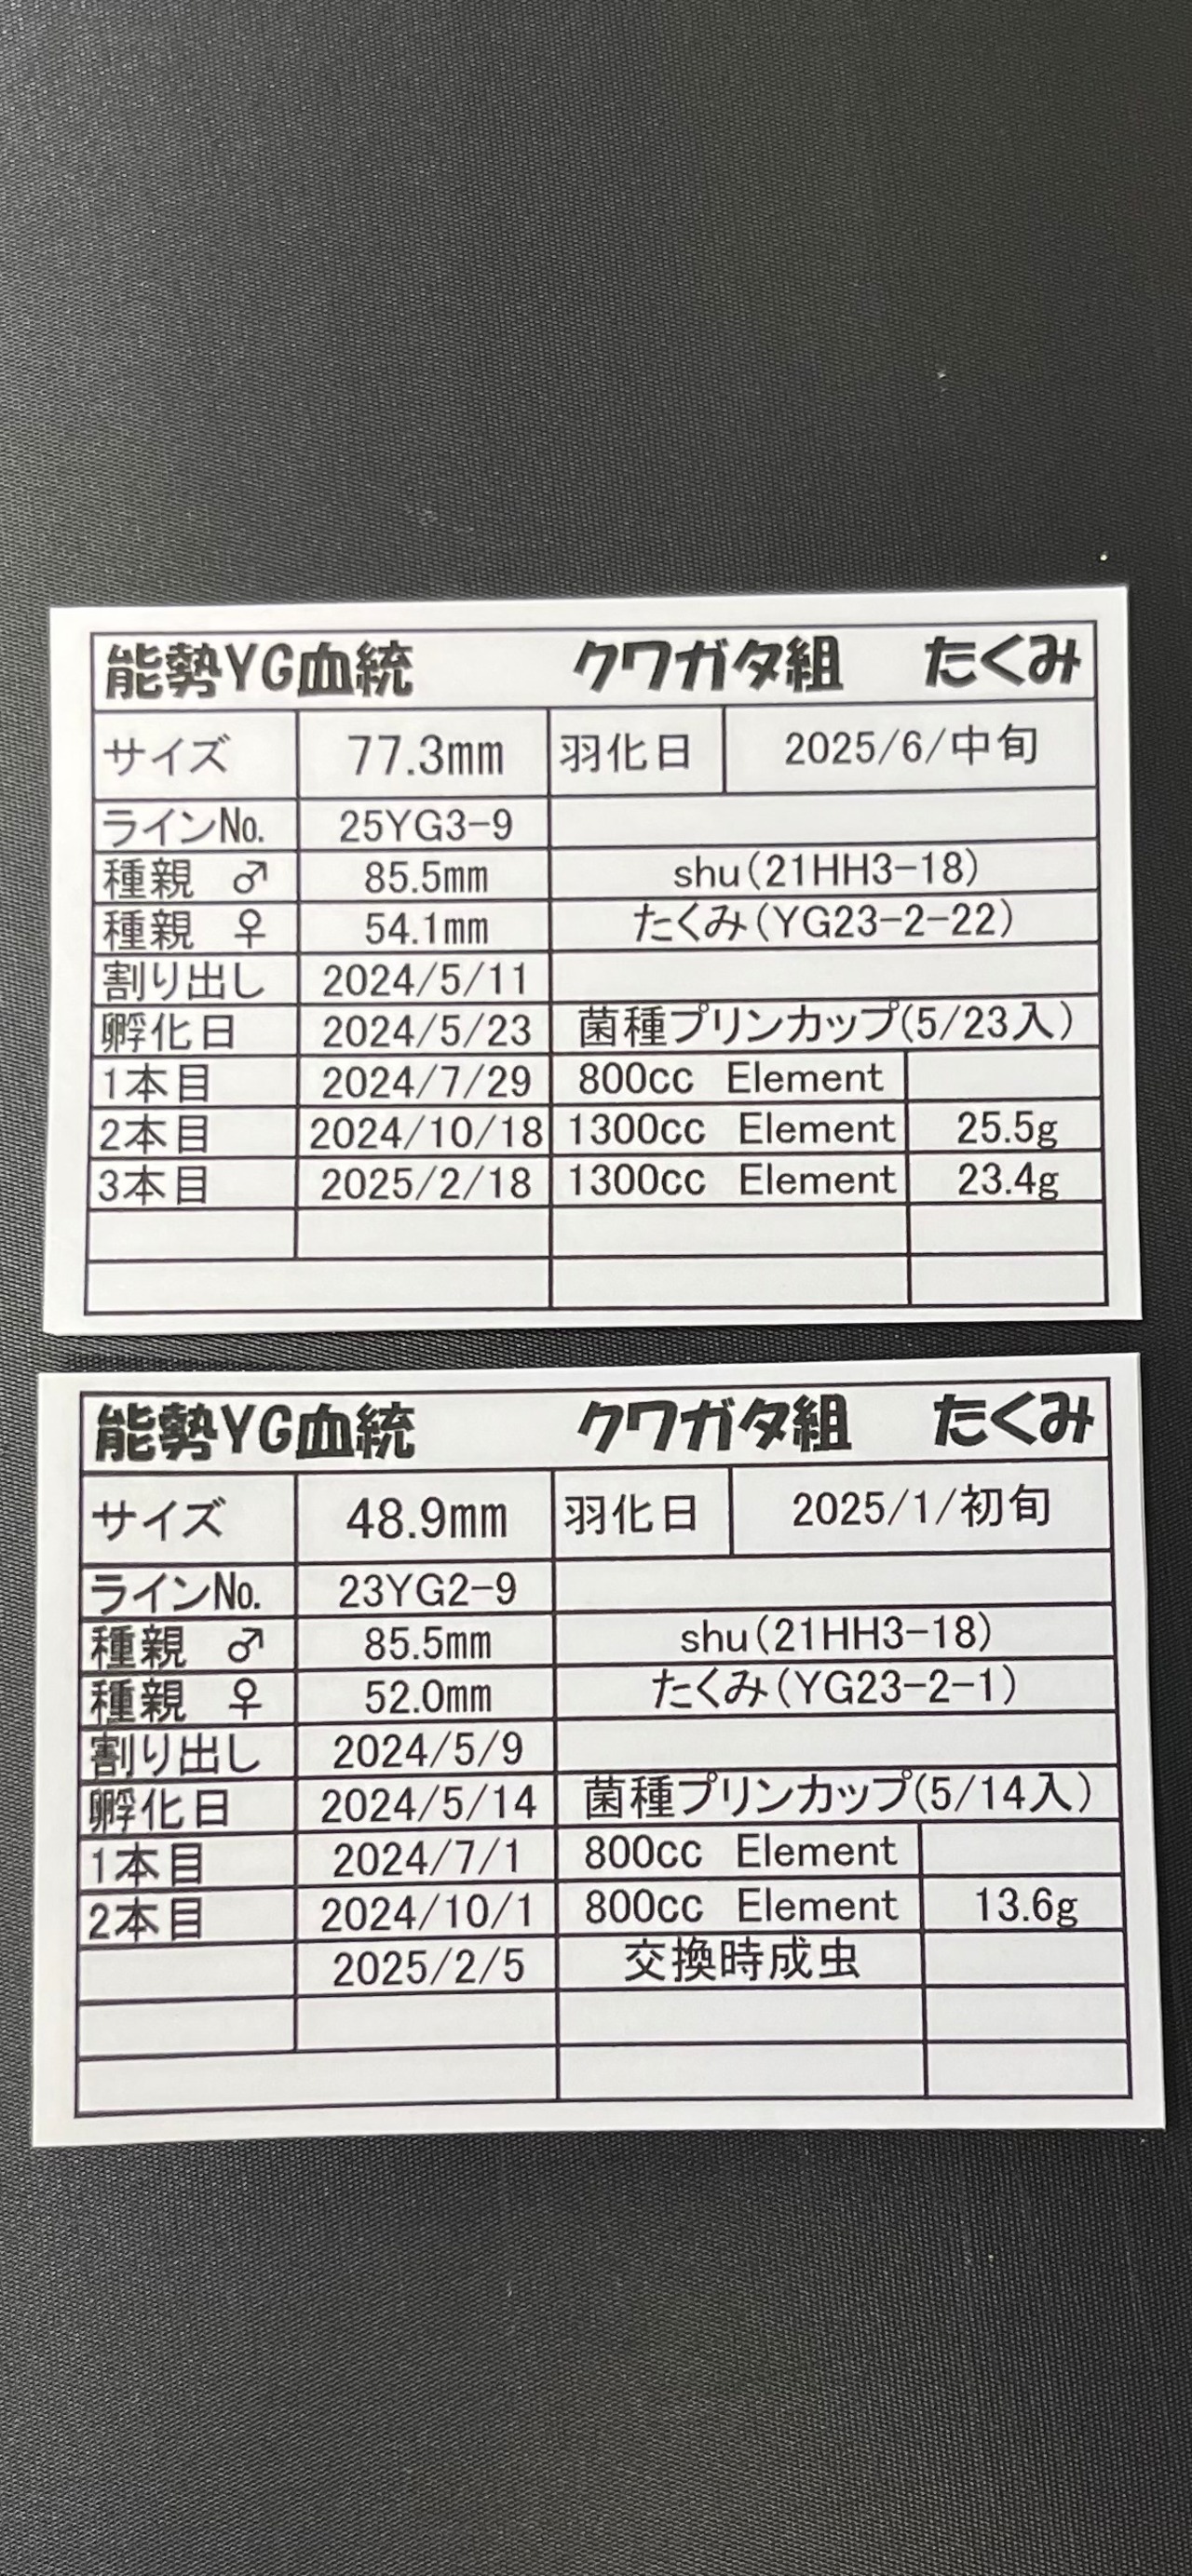 能勢YG血統 クワガタ組 たくみ
サイズ 77.3mm 羽化日 2025/6/中旬
ラインNo. 25YG3-9
種親 ♂ 85.5mm shu(21HH3-18)
種親 ♀ 54.1mm たくみ(YG23-2-22)
割り出し 2024/5/11
孵化日 2024/5/23 菌種プリンカップ(5/23入)
1本目 2024/7/29 800cc Element
2本目 2024/10/18 1300cc Element 25.5g
3本目 2025/2/18 1300cc Element 23.4g
能勢YG血統 クワガタ組 たくみ
サイズ 48.9mm 羽化日 2025/1/初旬
ラインNo. 23YG2-9
種親 ♂ 85.5mm shu(21HH3-18)
種親 ♀ 52.0mm たくみ(YG23-2-1)
割り出し 2024/5/9
孵化日 2024/5/14 菌種プリンカップ(5/14入)
1本目 2024/7/1 800cc Element
2本目 2024/10/1 800cc Element 13.6g
2025/2/5 交換時成虫